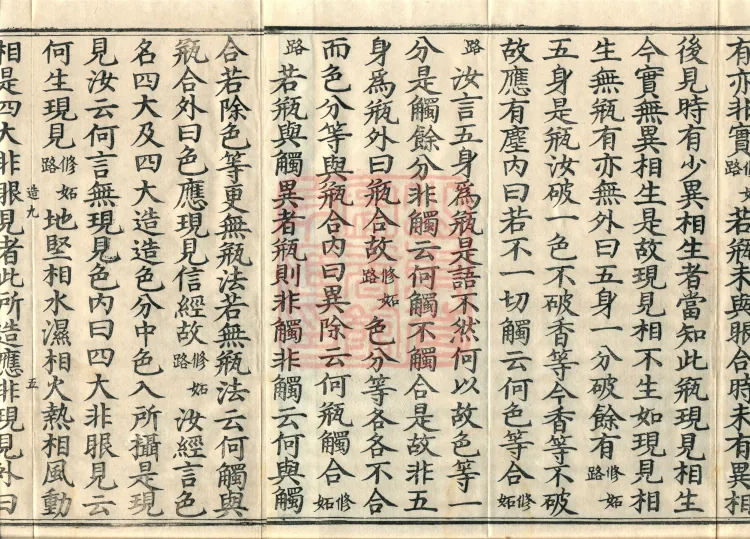 有亦非實修妬路若瓶未與眼合時未有異相
後見時有少異相生者當知此瓶現見相生
今實無異相生是故現見相不生如現見相
生無瓶有亦無外曰五身一分破餘有修妬路
五身是瓶汝破一色不破香等今香等不破
故應有塵內曰若不一切觸云何色等合修妬
路汝言五身為瓶是語不然何以故色等一
分是觸餘分非觸云何觸不觸合是故非五
身為瓶外曰瓶合故修妬路色分等各各不合
而色分等與瓶合內曰異除云何瓶觸合修妬
路若瓶與觸異者瓶則非觸非觸云何與觸
合若除色等更無瓶法若無瓶法云何觸與
瓶合外曰色應現見信經故修妬路汝經言色
名四大及四大造造色分中色入所攝是現
見汝云何言無現見色內曰四大非眼見云
何生現見修妬路地堅相水濕相火熱相風動
造九 五
相是四大非眼見者此所造應非現見外曰